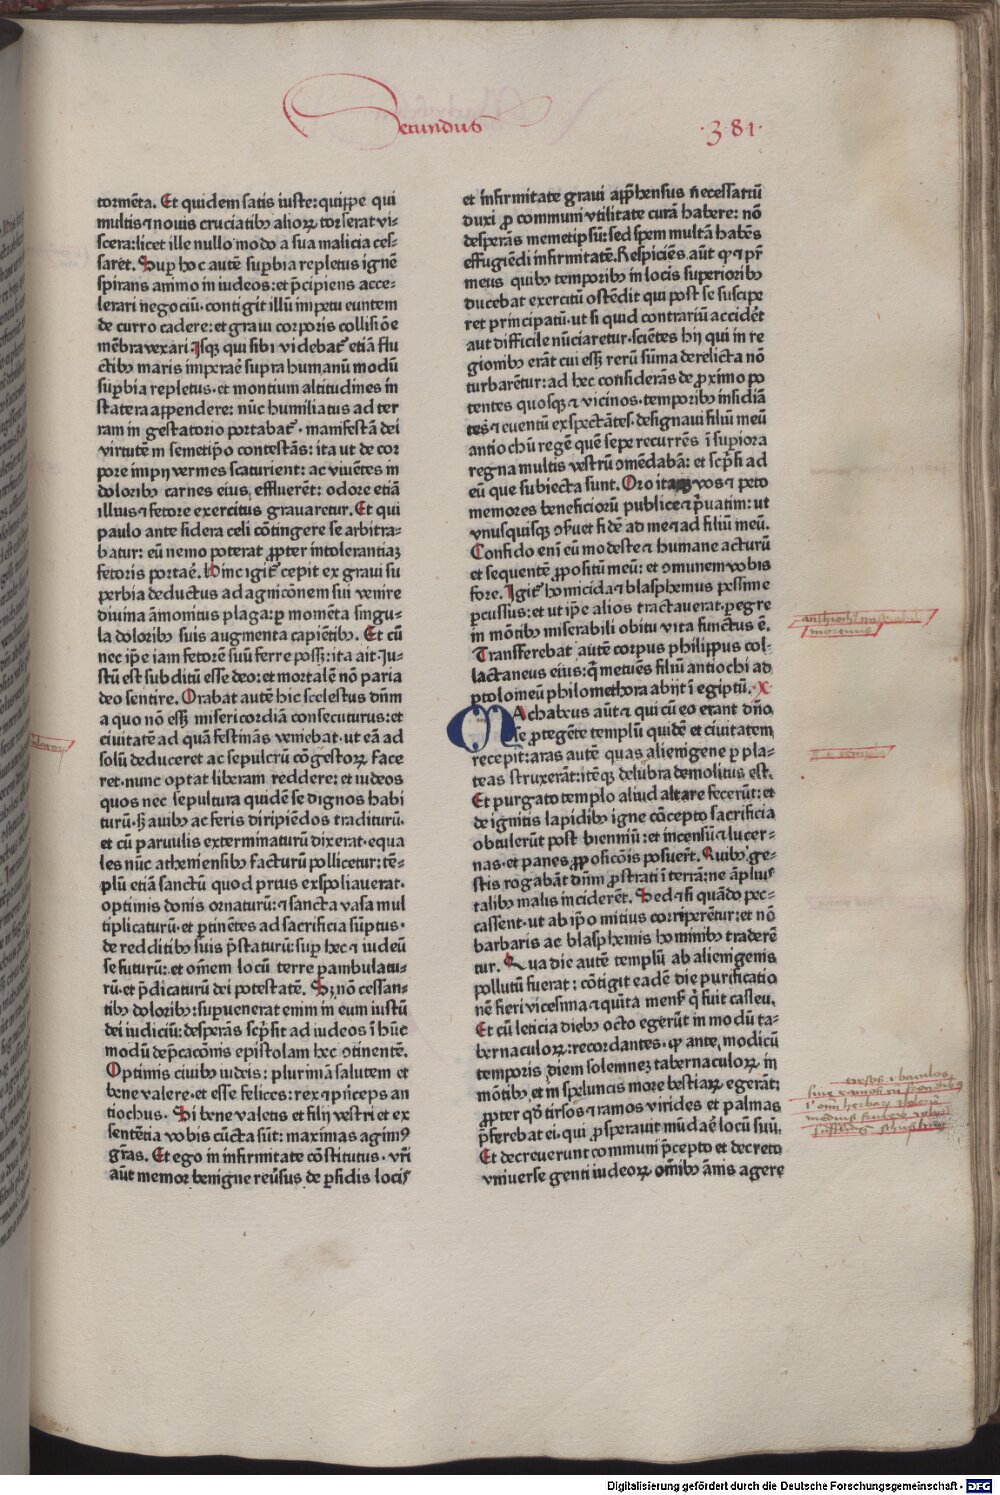 Secundus
·381·
tormēta. Et quidem satis iuste: quippe qui
multis ⁊ nouis cruciatibꝫ alioꝝ torserat vi-
scera: licet ille nullo modo a sua malicia ces-
saret. Suꝑ hoc autē suꝑbia repletus ignē
spirans animo in iudeos: et p̄cipiens acce-
lerari negociū· contigit illū impetu euntem
de curro cadere: et graui corporis collisiōe
mēbra vexari. Isqꝫ qui sibi videbat᷑ etiā flu
ctibꝫ maris imperaē supra humanū modū
suꝑbia repletus· et montium altitudines in
statera appendere: nūc humiliatus ad ter
ram in gestatorio portabat᷑· manifestā dei
virtutē in semetip̄o contestās: ita ut de cor
pore impij vermes scaturient: ac viuētes in
doloribꝫ carnes eius effluerēt: odore etiā
illius ⁊ fetore exercitus grauaretur. Et qui
paulo ante sidera celi cōtingere se arbitra-
batur: eū nemo poterat ꝓpter intolerantiaꝫ
fetoris portaē. Hinc igit᷑ cepit ex graui su
perbia deductus ad agnicōnem sui venire
diuina āmonitus plaga: ꝑ momēta singu-
la doloribꝫ suis augmenta capiētibꝫ. Et cū
nec ip̄e iam fetorē suū ferre possꝫ: ita ait· Ju-
stū est subditū esse deo: et mortalē nō paria
deo sentire. Orabat autē hic scelestus dn̄m
a quo nō essꝫ misericordiā consecuturus: et
ciuitatē ad quā festinās veniebat· ut eā ad
solū deduceret ac sepulcrū cōgestoꝝ face
ret· nunc optat liberam reddere: et iudeos
quos nec sepultura quidē se dignos habi
turū· sꝫ auibꝫ ac feris diripiēdos traditurū·
et cū paruulis exterminaturū dixerat· equa
les nūc atheniensibꝫ facturū pollicetur: tē-
plū etiā sanctū quod prius exspoliauerat·
optimis donis ornaturū: ⁊ sancta vasa mul
tiplicaturū· et ꝑtinētes ad sacrificia sūptus·
de redditibꝫ suis p̄staturū: suꝑ hec ⁊ iudeū
se futurū: et om̄em locū terre ꝑambulatu-
rū· et p̄dicaturū dei potestatē. Sꝫ nō cessan-
tibꝫ doloribꝫ: suꝑuenerat enim in eum iustū
dei iudiciū: desperās scp̄sit ad iudeos ī hūc
modū dep̄cacōnis epistolam hec ꝯtinentē.
Optimis ciuibꝫ iudeis: plurimā salutem et
bene valere· et esse felices: rex ⁊ pͥnceps an
tiochus. Si bene valetis et filij vestri et ex
sentētia vobis cūcta sūt: maximas agimꝰ
gr̄as. Et ego in infirmitate cōstitutus· vr̄i
aūt memor benigne reūsus de ꝑsidis locis
et infirmitate graui app̄hensus necessariū
duxi ꝓ communi vtilitate curā habere: nō
desperās memetip̄sū: sed spem multā habēs
effugiēdi infirmitatē. Respiciēs aūt ꝙ et pr̄
meus quibꝫ temporibꝫ in locis superioribꝫ
ducebat exercitū ostēdit qui post se suscipe
ret principatū· ut si quid contrariū accidēt
aut difficile nūciaretur· sciētes hij qui in re
gionibꝫ erāt cui essꝫ rerū sūma derelicta nō
turbarētur: ad hec considerās de ꝓximo po
tentes quosqꝫ ⁊ vicinos· temporibꝫ insidiā
tes ⁊ euentū exspectātes· designaui filiū meū
antiochū regē quē sepe recurrēs ī suꝑiora
regna multis vestrū ꝯmēdabā: et scp̄si ad
eū que subiecta sunt. Oro itaqꝫ vos ⁊ peto
memores beneficiorū publice ⁊ p̄uatim: ut
vnusquisqꝫ ꝯseruet fidē ad me ⁊ ad filiū meū.
Confido enī eū modeste ⁊ humane acturū
et sequentē ꝓpositū meū: et ꝯmunem vobis
fore. Igit᷑ homicida ⁊ blasphemus pessime
ꝑcussus: et ut ip̄e alios tractauerat· ꝑegre
in mōtibꝫ miserabili obitu vita functus ē.
Transferebat autē corpus philippus col-
lactaneus eius: q̄ metuēs filiū antiochi ad
ptolomeū philomethora abijt ī egiptū. X
MAchabeus aūt ⁊ qui cū eo erant dn̄o
se ꝓtegēte templū quidē et ciuitatem
recepit: aras autē quas alienigene ꝑ pla-
teas struxerāt: itēqꝫ delubra demolitus est.
Et purgato templo aliud altare fecerūt: et
de ignitis lapidibꝫ igne cōcepto sacrificia
obtulerūt post bienniū: et incensū ⁊ lucer-
nas· et panes ꝓposicōis posuer̄t. Quibꝫ ge-
stis rogabāt dn̄m ꝓstrati ī terrā: ne āplius
talibꝫ malis inciderēt. Sed ⁊ si quādo pec-
cassent· ut ab ip̄o mitius corriperētur: et nō
barbaris ac blasphemis hominibꝫ traderē
tur. Qua die autē templū ab alienigenis
pollutū fuerat: cōtigit eadē die purificatio
nē fieri vicesima ⁊ quīta mens̄ q̄ fuit casleu.
Et cū leticia diebꝫ octo egerūt in modū ta-
bernaculoꝝ: recordantes· ꝙ ante modicū
temporis diem solemneꝫ tabernaculoꝝ in
mōtibꝫ et in speluncis more bestiaꝝ egerāt:
ꝓpter qd̄ tirsos ⁊ ramos virides et palmas
p̄ferebat ei· qui ꝓsperauit mūdaē locū suū.
Et decreuerunt communi p̄cepto et decreto
vniuerse genti iudeoꝝ om̄ibꝫ ānis agere
Digitalisierung gefördert durch die Deutsche Forschungsgemeinschaft - DFG